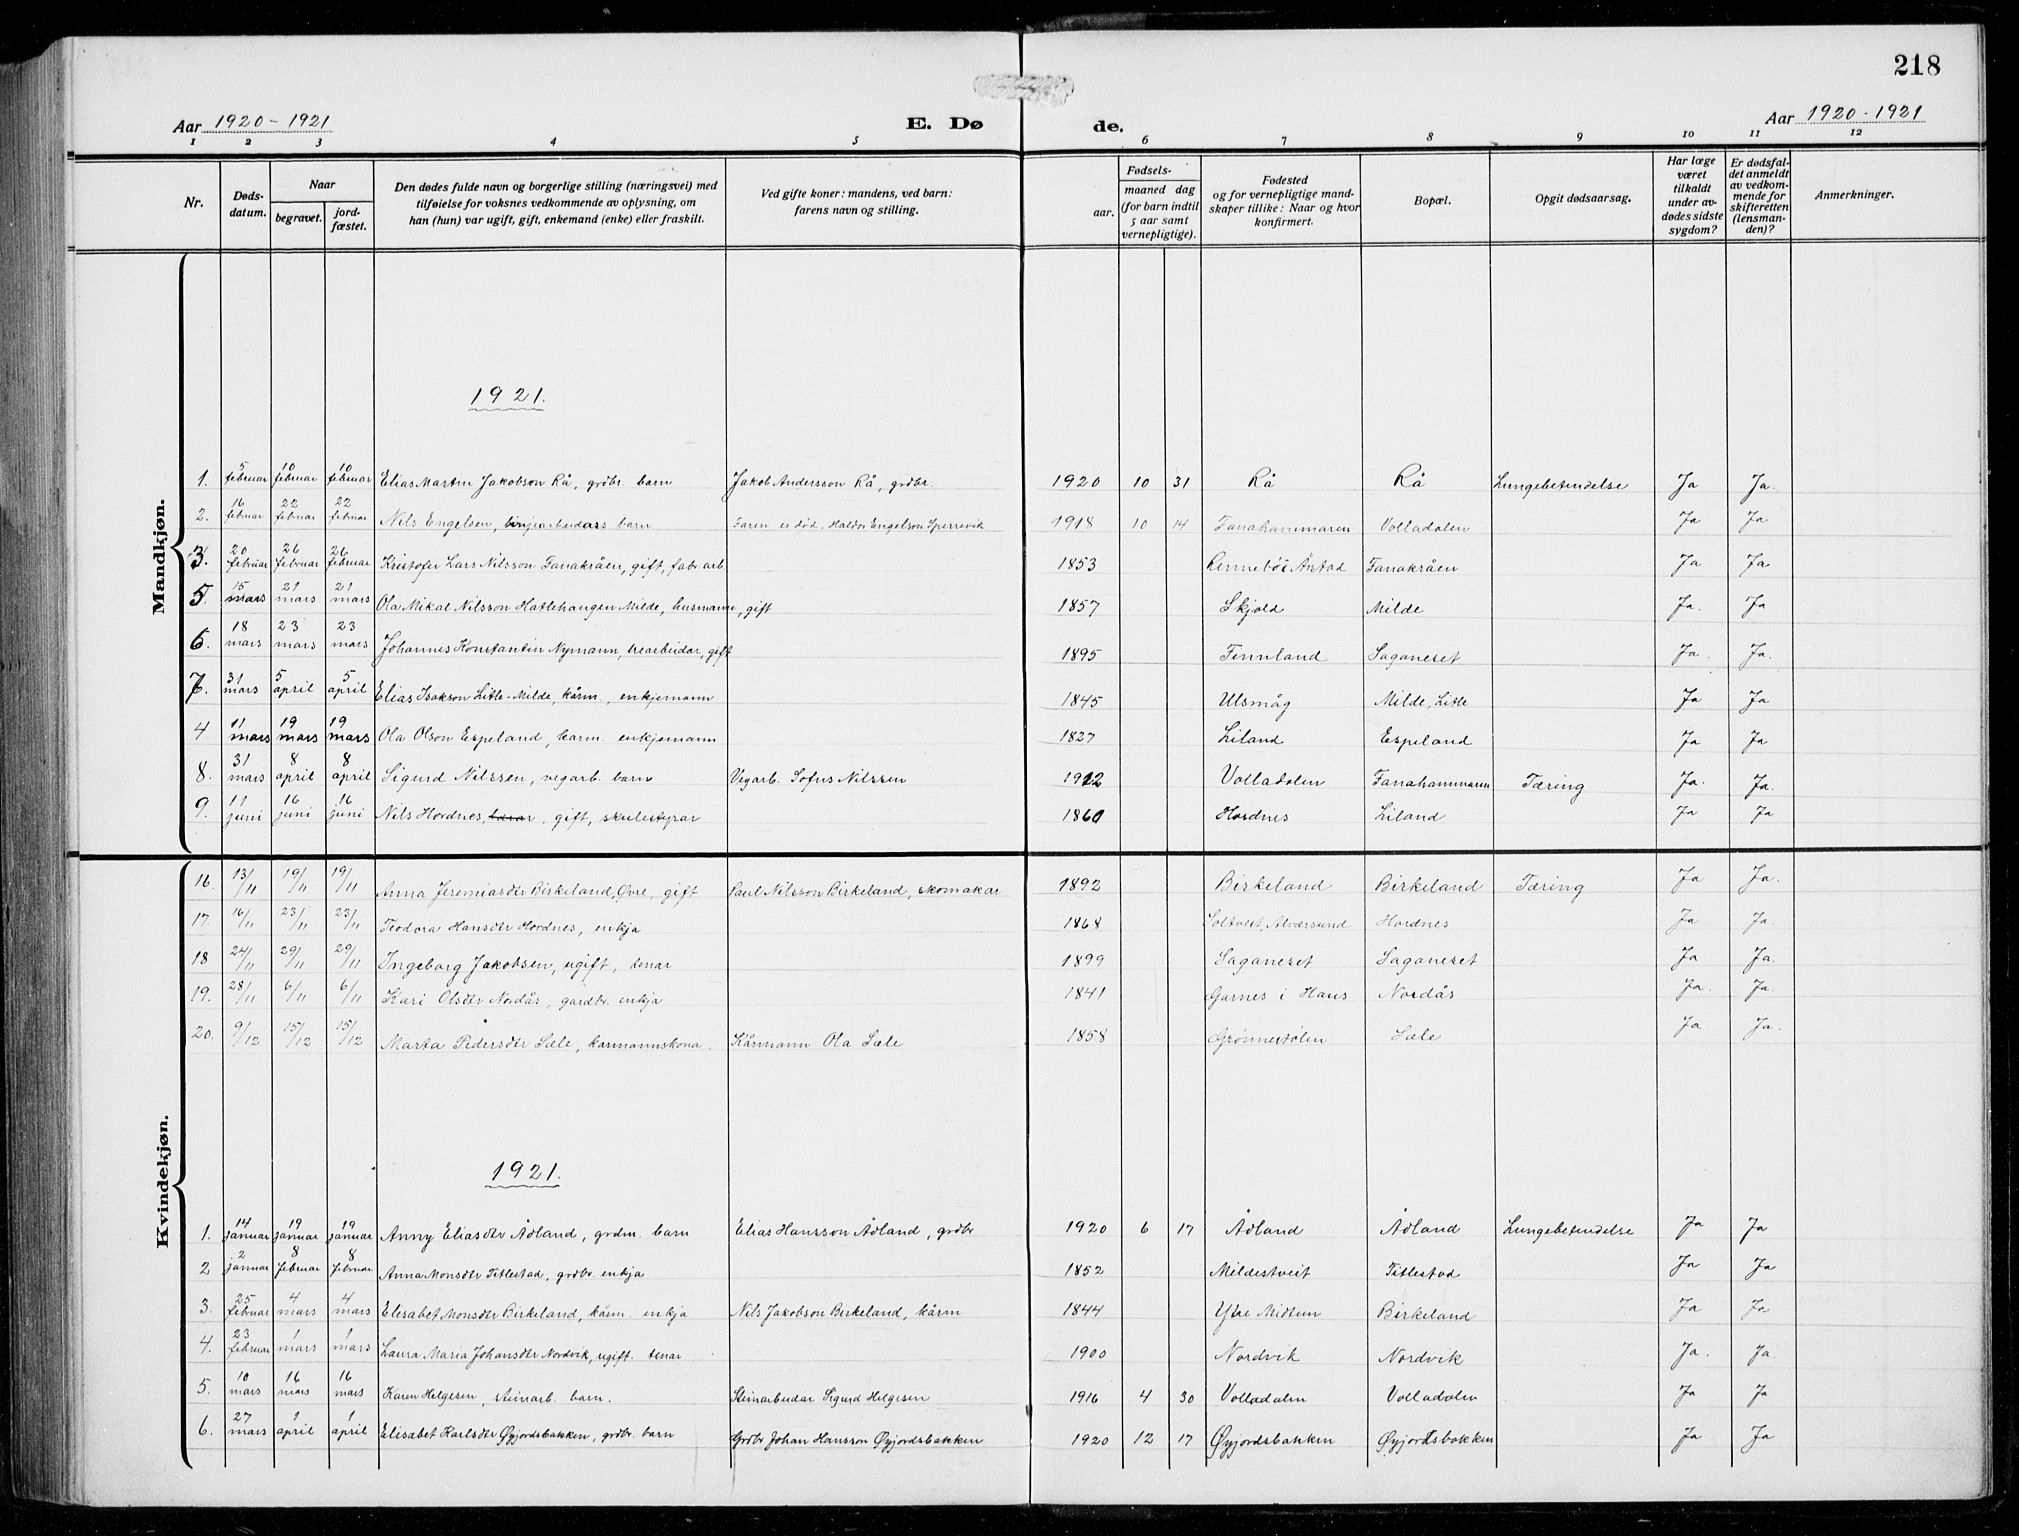 218
Aar 1920-1921 E. Døde. Aar 1920-1921
1 2 3 4 5 6 7 8 9 10 11 12
Nr. Dødsdatum. Naar begravet. jordfæstet. Den dødes fulde navn og borgerlige stilling (næringsvei) med tilføielse for voksnes vedkommende av oplysning, om han (hun) var ugift, gift, enkemand (enke) eller fraskilt. Ved gifte koner: mandens, ved barn: farens navn og stilling. Fødsels- aar. maaned dag (for barn indtil 5 aar samt vernepligtige). Fødested og for vernepligtige mandskaper tillike: Naar og hvor konfirmert. Bopæl. Opgit dødsaarsag. Har læge været tilkaldt under avdødes sidste sygdom? Er dødsfaldet anmeldt av vedkommende for skifteretten (lensmanden)? Anmerkninger.
Mandkjøn.
1921.
1. 5 februar 10 februar 10 februar Elias Martin Jakobson Rå, grdbr. barn Jakob Andersson Rå, grdbr. 1920 10 31 Rå Rå Lungebetendelse Ja Ja.
2. 16 februar 22 februar 22 februar Nils Engelsen, linjearbeidars barn Faren er død. Haldor Engelson Sperrevik 1918 10 14 Fanahammaren Volladalen Ja Ja
3. 20 februar 26 februar 26 februar Kristofer Lars Nilsson Fanakråen, gift, fabr.arb 1853 Årstad Fanakråen Ja Ja
5. 15 mars 21 mars 21 mars Ola Mikal Nilsson Hatlehaugen Milde, husmann, gift 1857 Skjold Milde Ja. Ja
6. 18 mars 23 mars 23 mars Johannes Konstantin Nymann, trearbeidar, gift 1895 Finnland Saganeset Ja. Ja.
7. 31 mars 5 april 5 april Elias Isakson Litle-Milde, kårm., enkjemann 1845 Ulsmåg Milde, Litle Ja Ja
4 11 mars 19 mars 19 mars Ola Olson Espeland, kårm. enkjemann 1827 Liland Espeland Ja Ja
8. 31 mars 8 april 8 april Sigurd Nilssen, vegarb. barn Vegarb. Sofus Nilssen 1912 Volladalen Fanahammaren Tæring Ja. Ja.
9. 11 juni 16 juni 16 juni Nils Hordnes, gift, skulestyrar 1860 Hordnes Liland Ja Ja
Kvindekjøn.
16. 13/11 19/11 19/11 Anna Jeremiasdtr Birkeland, Øvre, gift Paul Nilsson Birkeland, skomakar 1892 Birkeland Birkeland Tæring Ja Ja.
17. 16/11 23/11 23/11 Teodora Hansdtr Hordnes, enkja 1868 Soltveit, Alversund Hordnes Ja Ja.
18 24/11 29/11 29/11 Ingeborg Jakobsen, ugift, tenar 1899 Saganeset Saganeset Ja Ja.
19. 28/11 6/11 6/11 Kari Olsdtr Nordås, gardbr. enkja 1841 Garnes i Haus Nordås Ja. Ja.
20. 9/12 15/12 15/12 Marta Pedersdtr Sæle, kårmannskona. Kårmann Ola Sæle 1858 Grønnestølen Sæle Ja Ja.
1921.
1. 14 januar 19 januar 19 januar Anny Eliasdtr Ådland, grdm. barn Elias Hansson Ådland, grdbr 1920 6 17 Ådland Ådland Lungebetendelse Ja Ja
2 2 januar 8 februar 8 februar Anna Monsdtr Titlestad, grdbr. enkja 1852 Mildestveit Titlestad Ja Ja
3. 25 februar 4 mars 4 mars Elisabet Monsdtr Birkeland, kårm. enkja Nils Jakobson Birkeland, kårm 1844 Ytre Midtun Birkeland Ja Ja
4. 23 februar 1 mars 1 mars Laura Maria Johansdtr Nordvik, ugift. tenar 1900 Nordvik Nordvik Ja. Ja.
5. 10 mars 16 mars 16 mars Karen Helgesen, steinarb. barn. Steinarbeidar Sigurd Helgesen 1916 4 30 Volladalen Volladalen Ja Ja
6. 27 mars 1 april 1 april Elisabet Karlsdtr Øyjordsbakken, grdbr. barn Grdbr Johan Hansson Øyjordsbakken 1920 12 17 Øyjordsbakken Øyjordsbakken Ja Ja